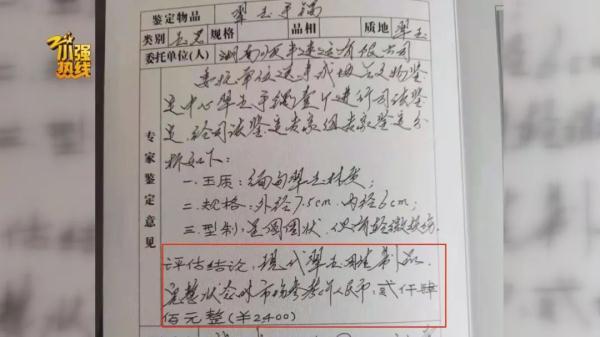 小强热线
鉴定物品 翠玉手镯
类别 玉器 规格 品相 质地 翠玉
委托单位(人) 湖南 有限公司
委托单位送来 文物鉴
定中心翠玉手镯壹个进行司法鉴
定,经司法鉴定专家组专家鉴定分
析如下:
专家鉴定意见
一.玉质:缅甸翠玉材质;
二.规格:外径7.5cm.内径6cm;
三.型制:呈圆圈状,
评估结论,现代翠玉 制品.
完整状态的市场参考价人民币:贰仟肆
佰元整(¥2,400)